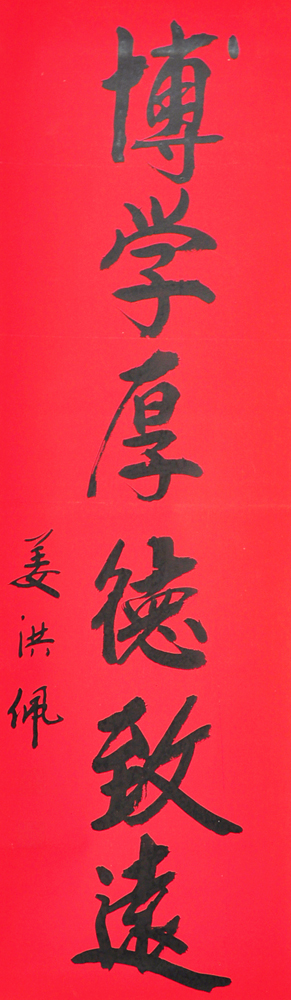 博学厚德致遠
姜洪佩